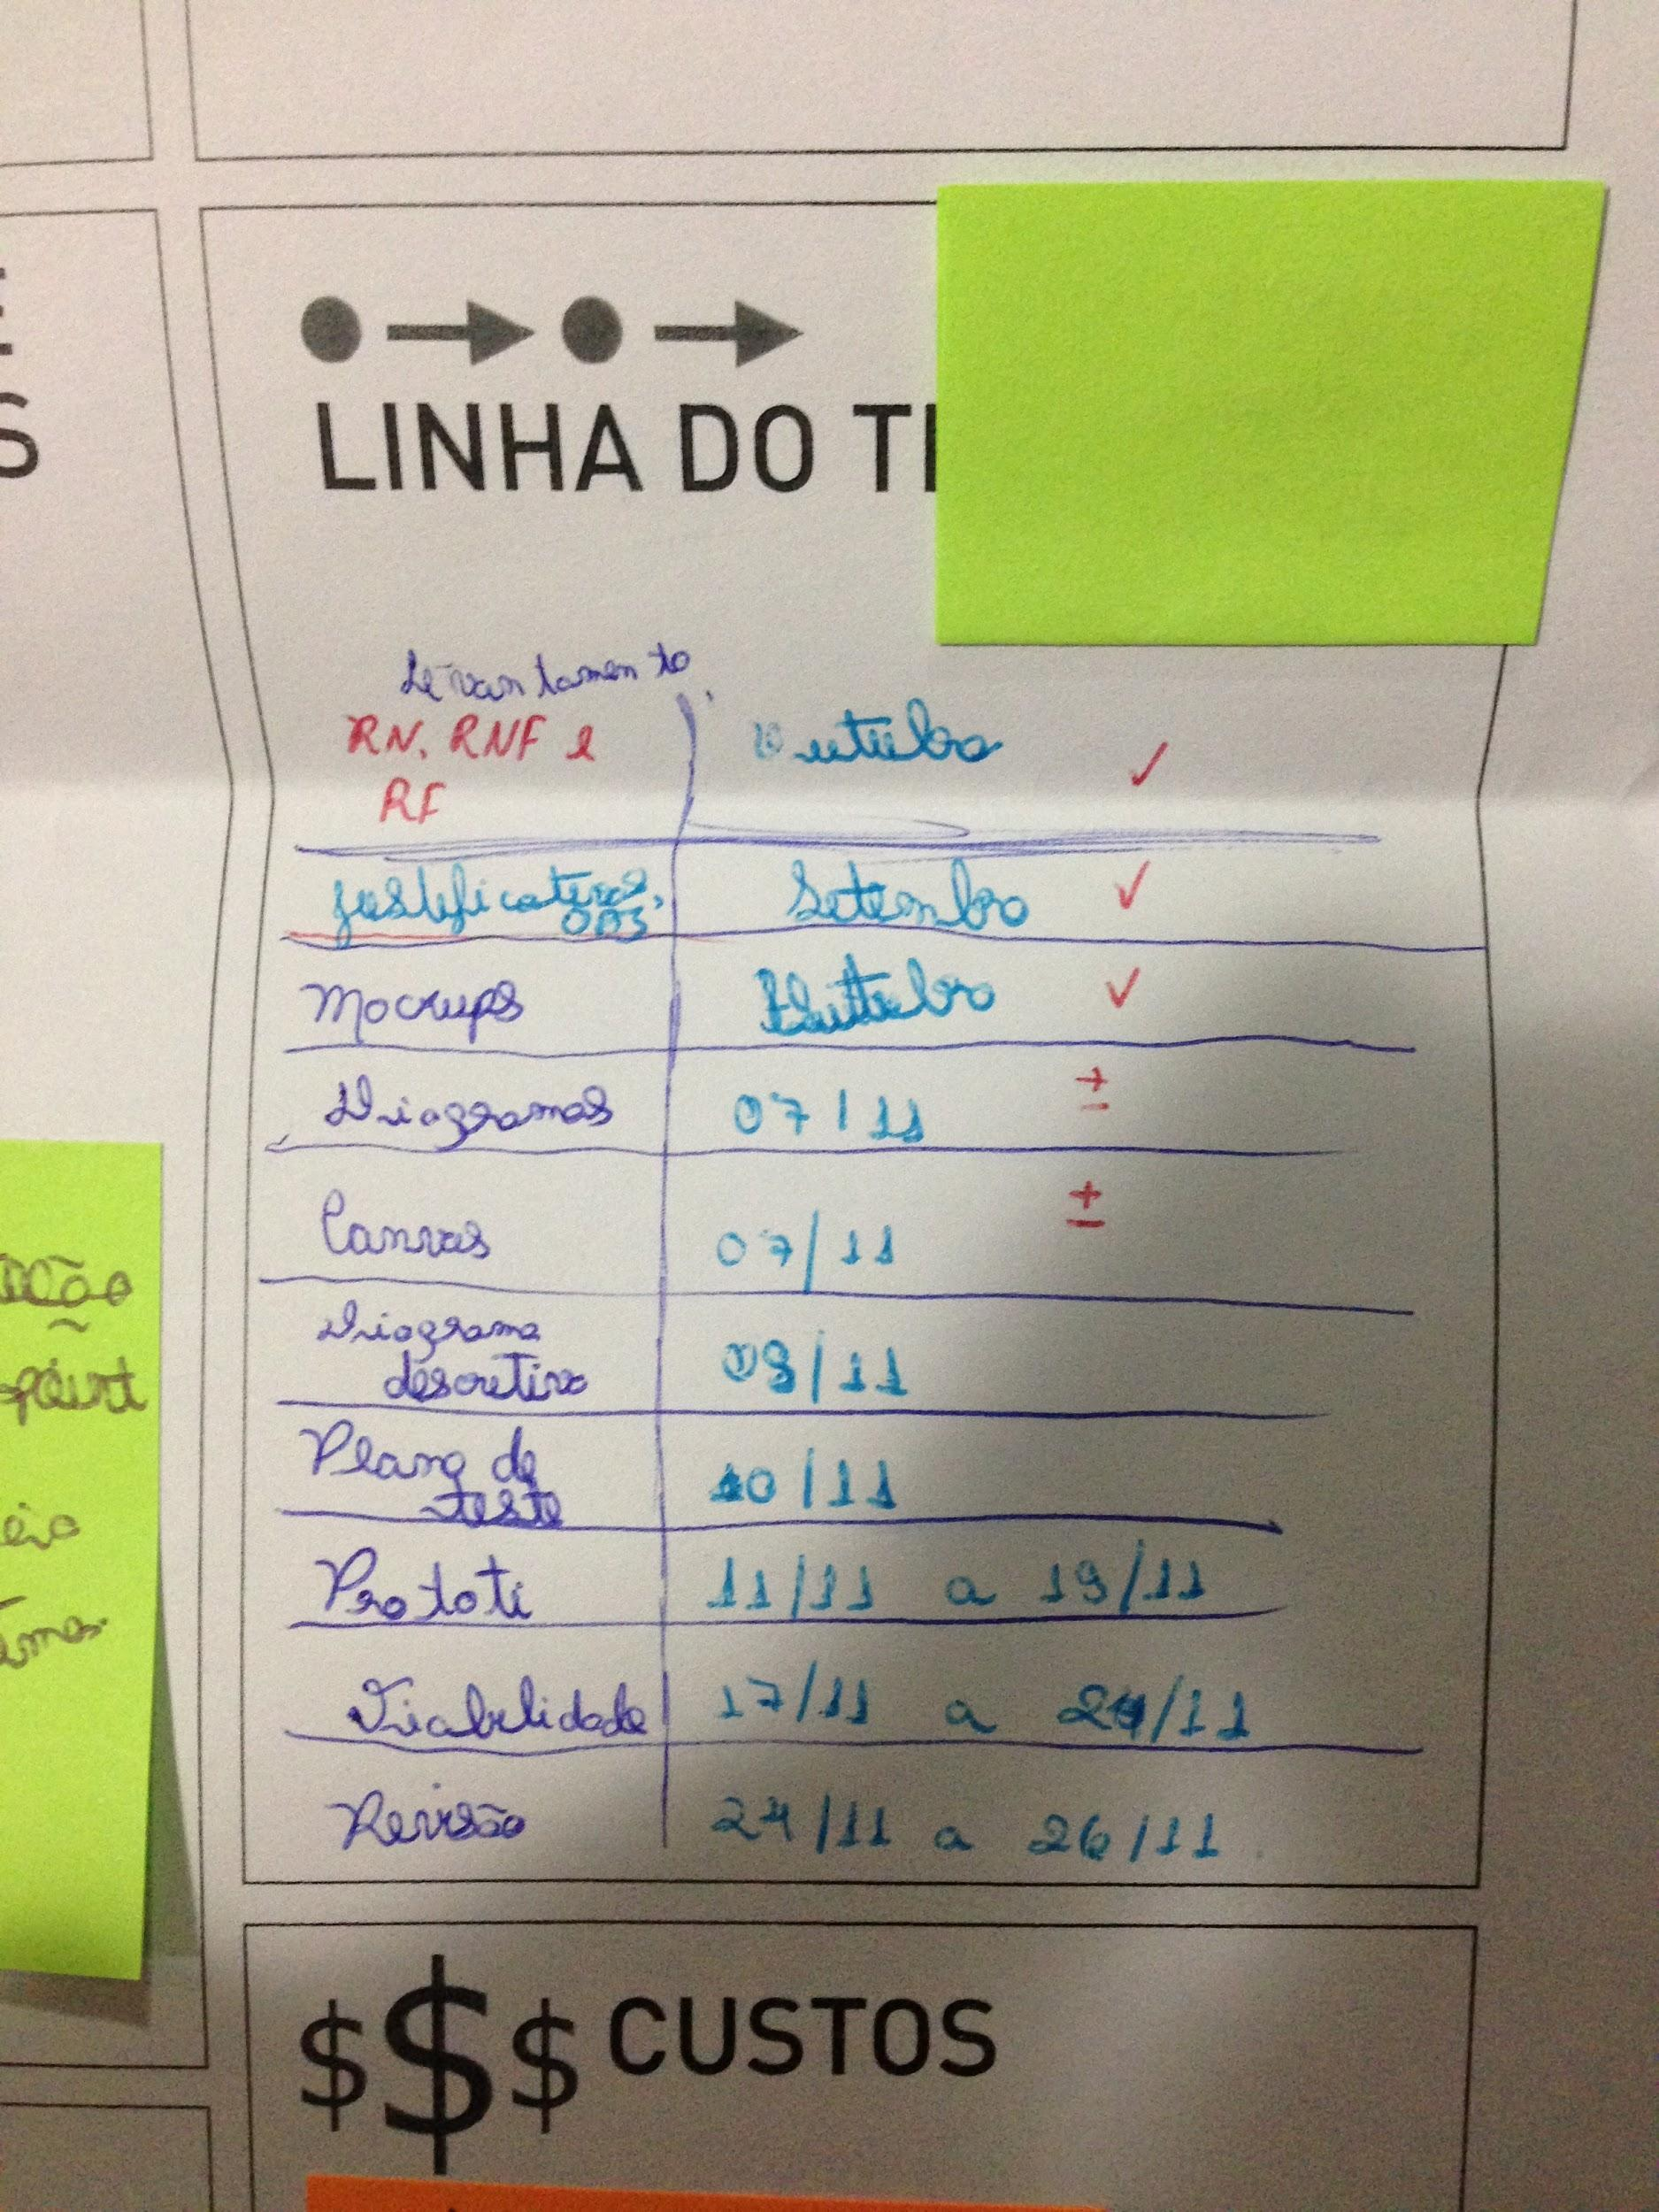 LINHA DO TI
Levantamento
RN, RNF e
RF
Outubro ✓
Justificativas,
OBJ
Setembro ✓
Mockups
Outubro ✓
Diagramas 07/11 ±
Canvas 07/11 ±
Diagrama
descritivo 09/11
Plano de
teste 10/11
Prototi 11/11 a 19/11
Viabilidade 17/11 a 24/11
Revisão 24/11 a 26/11
$$$ CUSTOS
S